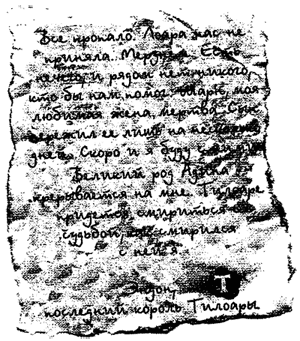 Все пропало. Лоара нас не
приняла. Мерзнем. Есть
нечего, и рядом нет никого,
кто бы нам помог. Шарн, моя
любимая жена, мертва. Сын
пережил ее лишь на несколько
дней. Скоро и я буду с ними.
Великий род Адина
прерывается на мне. Тилоаре
придется смириться с
судьбой, как смирился
с ней я.
Эндон,
последний король Тилоары
Т